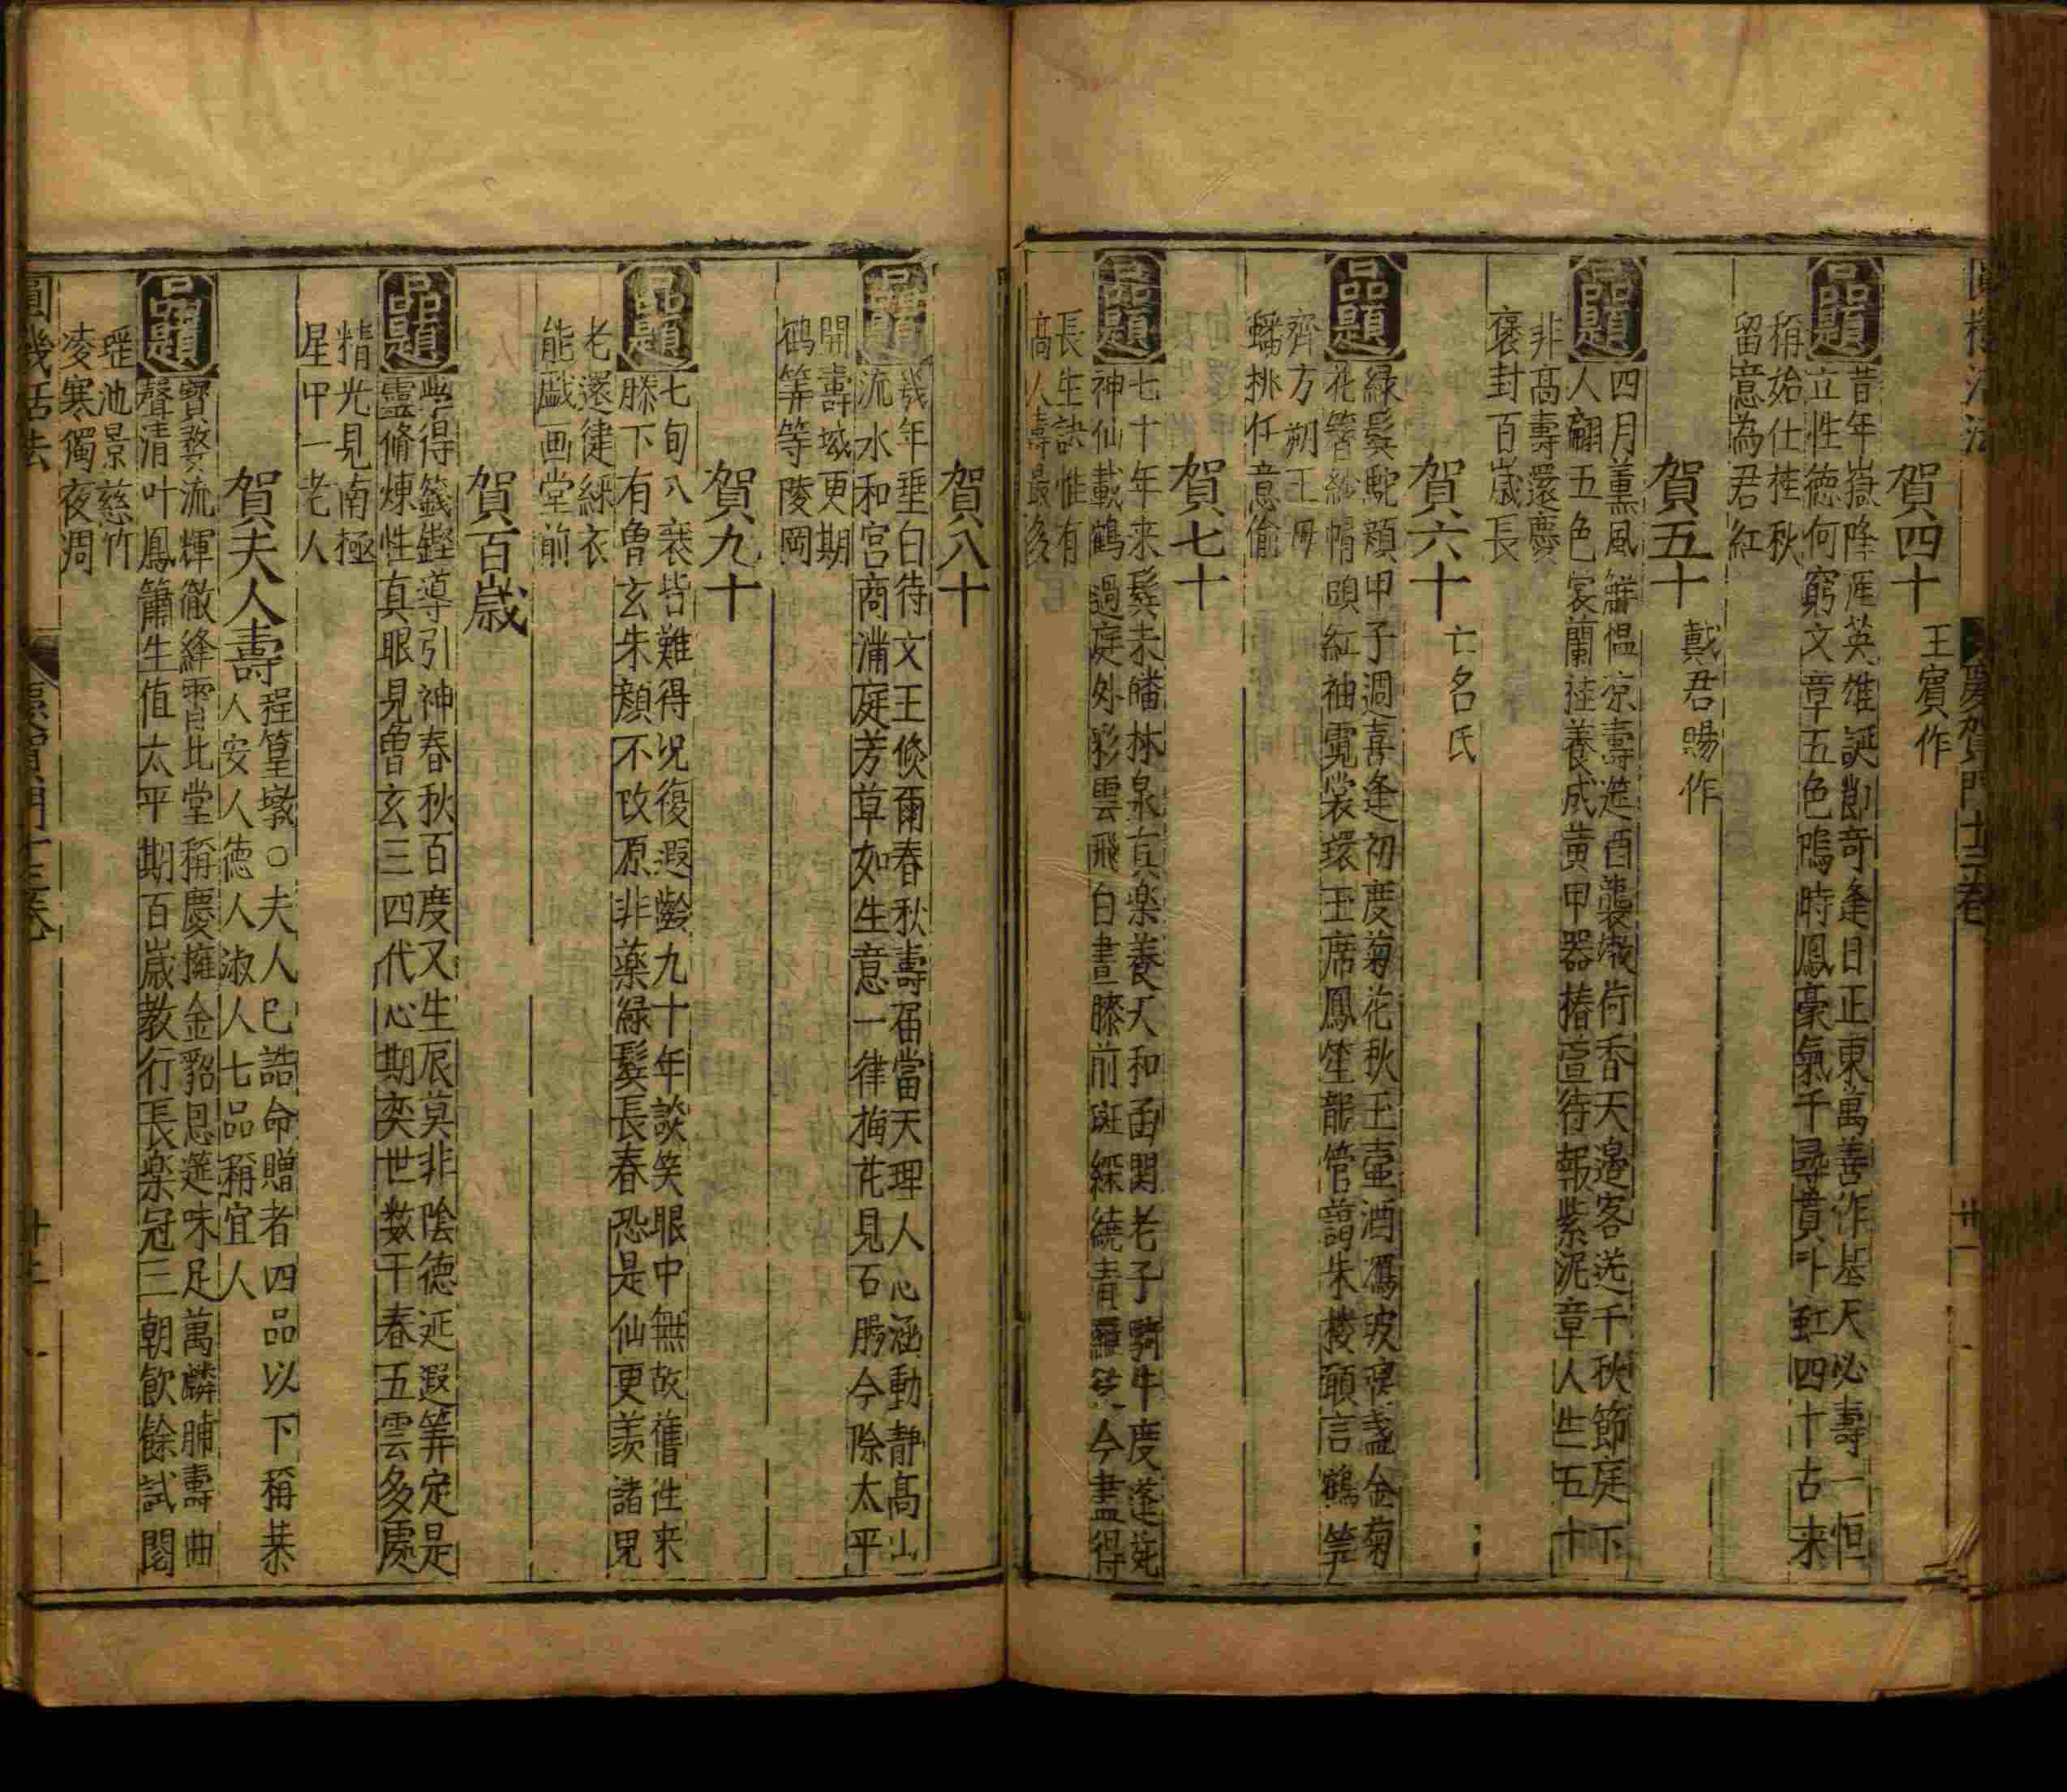 慶賀門十三卷
廿一
賀四十
王賓作
品題
昔年嶽降産英雄誕節奇逢日正東萬善作基天必壽一恒
立性德何窮文章五色鳴時鳳豪氣千尋貫斗虹四十古来
稱始仕桂秋
留意為君紅
賀五十
戴君賜作
品題
四月薰風觧愠凉壽筵酒襲嫩荷香天邉客送千秋節庭下
人翩五色裳蘭桂養成黄甲器椿萱待報紫泥章人生五十
非髙壽還慶
褒封百歲長
賀六十
亡名氏
品題
緑髪駝顔甲子週喜逢初度菊花秋玉壷酒瀉玻瓈盞金菊
花簪紗帽頭紅袖霓裳環玉席鳳笙龍管謌朱楼願言鶴筭
齊方朔王母
蟠桃任意偷
賀七十
品題
七十年来髪未皤林泉真楽養天和函関老子騎牛度蓬苑
神仙載鶴過庭外彩雲飛白晝膝前斑綵繞青羅从今盡得
長生訣惟有
髙人壽最多
賀八十
品題
幾年垂白待文王倐爾春秋壽届當天理人心涵動静髙山
流水和宫商滿庭芳草如生意一律梅花見石膓今際太平
開壽域更期
鹤筭等陵岡
賀九十
品題
七旬八袠皆難得况復遐齡九十年談笑眼中無故舊徃来
膝下有曽玄朱顔不改原非藥緑髪長春恐是仙更羨諸児
老還健綵衣
能戯画堂前
賀百歲
品題
學得籛鏗導引神春秋百度又生辰莫非陰德延遐筭定是
靈脩煉性真眼見曽玄三四代心期奕世数千春五雲多處
精光見南極
星甲一老人
賀夫人壽
程篁墩○夫人已誥命贈者四品以下稱恭
人安人德人淑人七品稱宜人
品題
寳婺流輝徹絳霄北堂稱慶擁金貂恩筵味足萬麟脯壽曲
聲清叶鳳簫生值太平期百歲教行長楽冠三朝飲餘試閲
瑶池景慈竹
凌寒獨夜凋
圓機活法